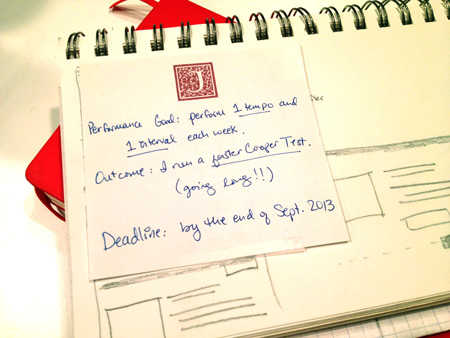 J
Performance Goal: perform 1 tempo and
1 interval each week.
Outcome: I run a faster Cooper Test.
(going long!!)
Deadline: by the end of Sept. 2013